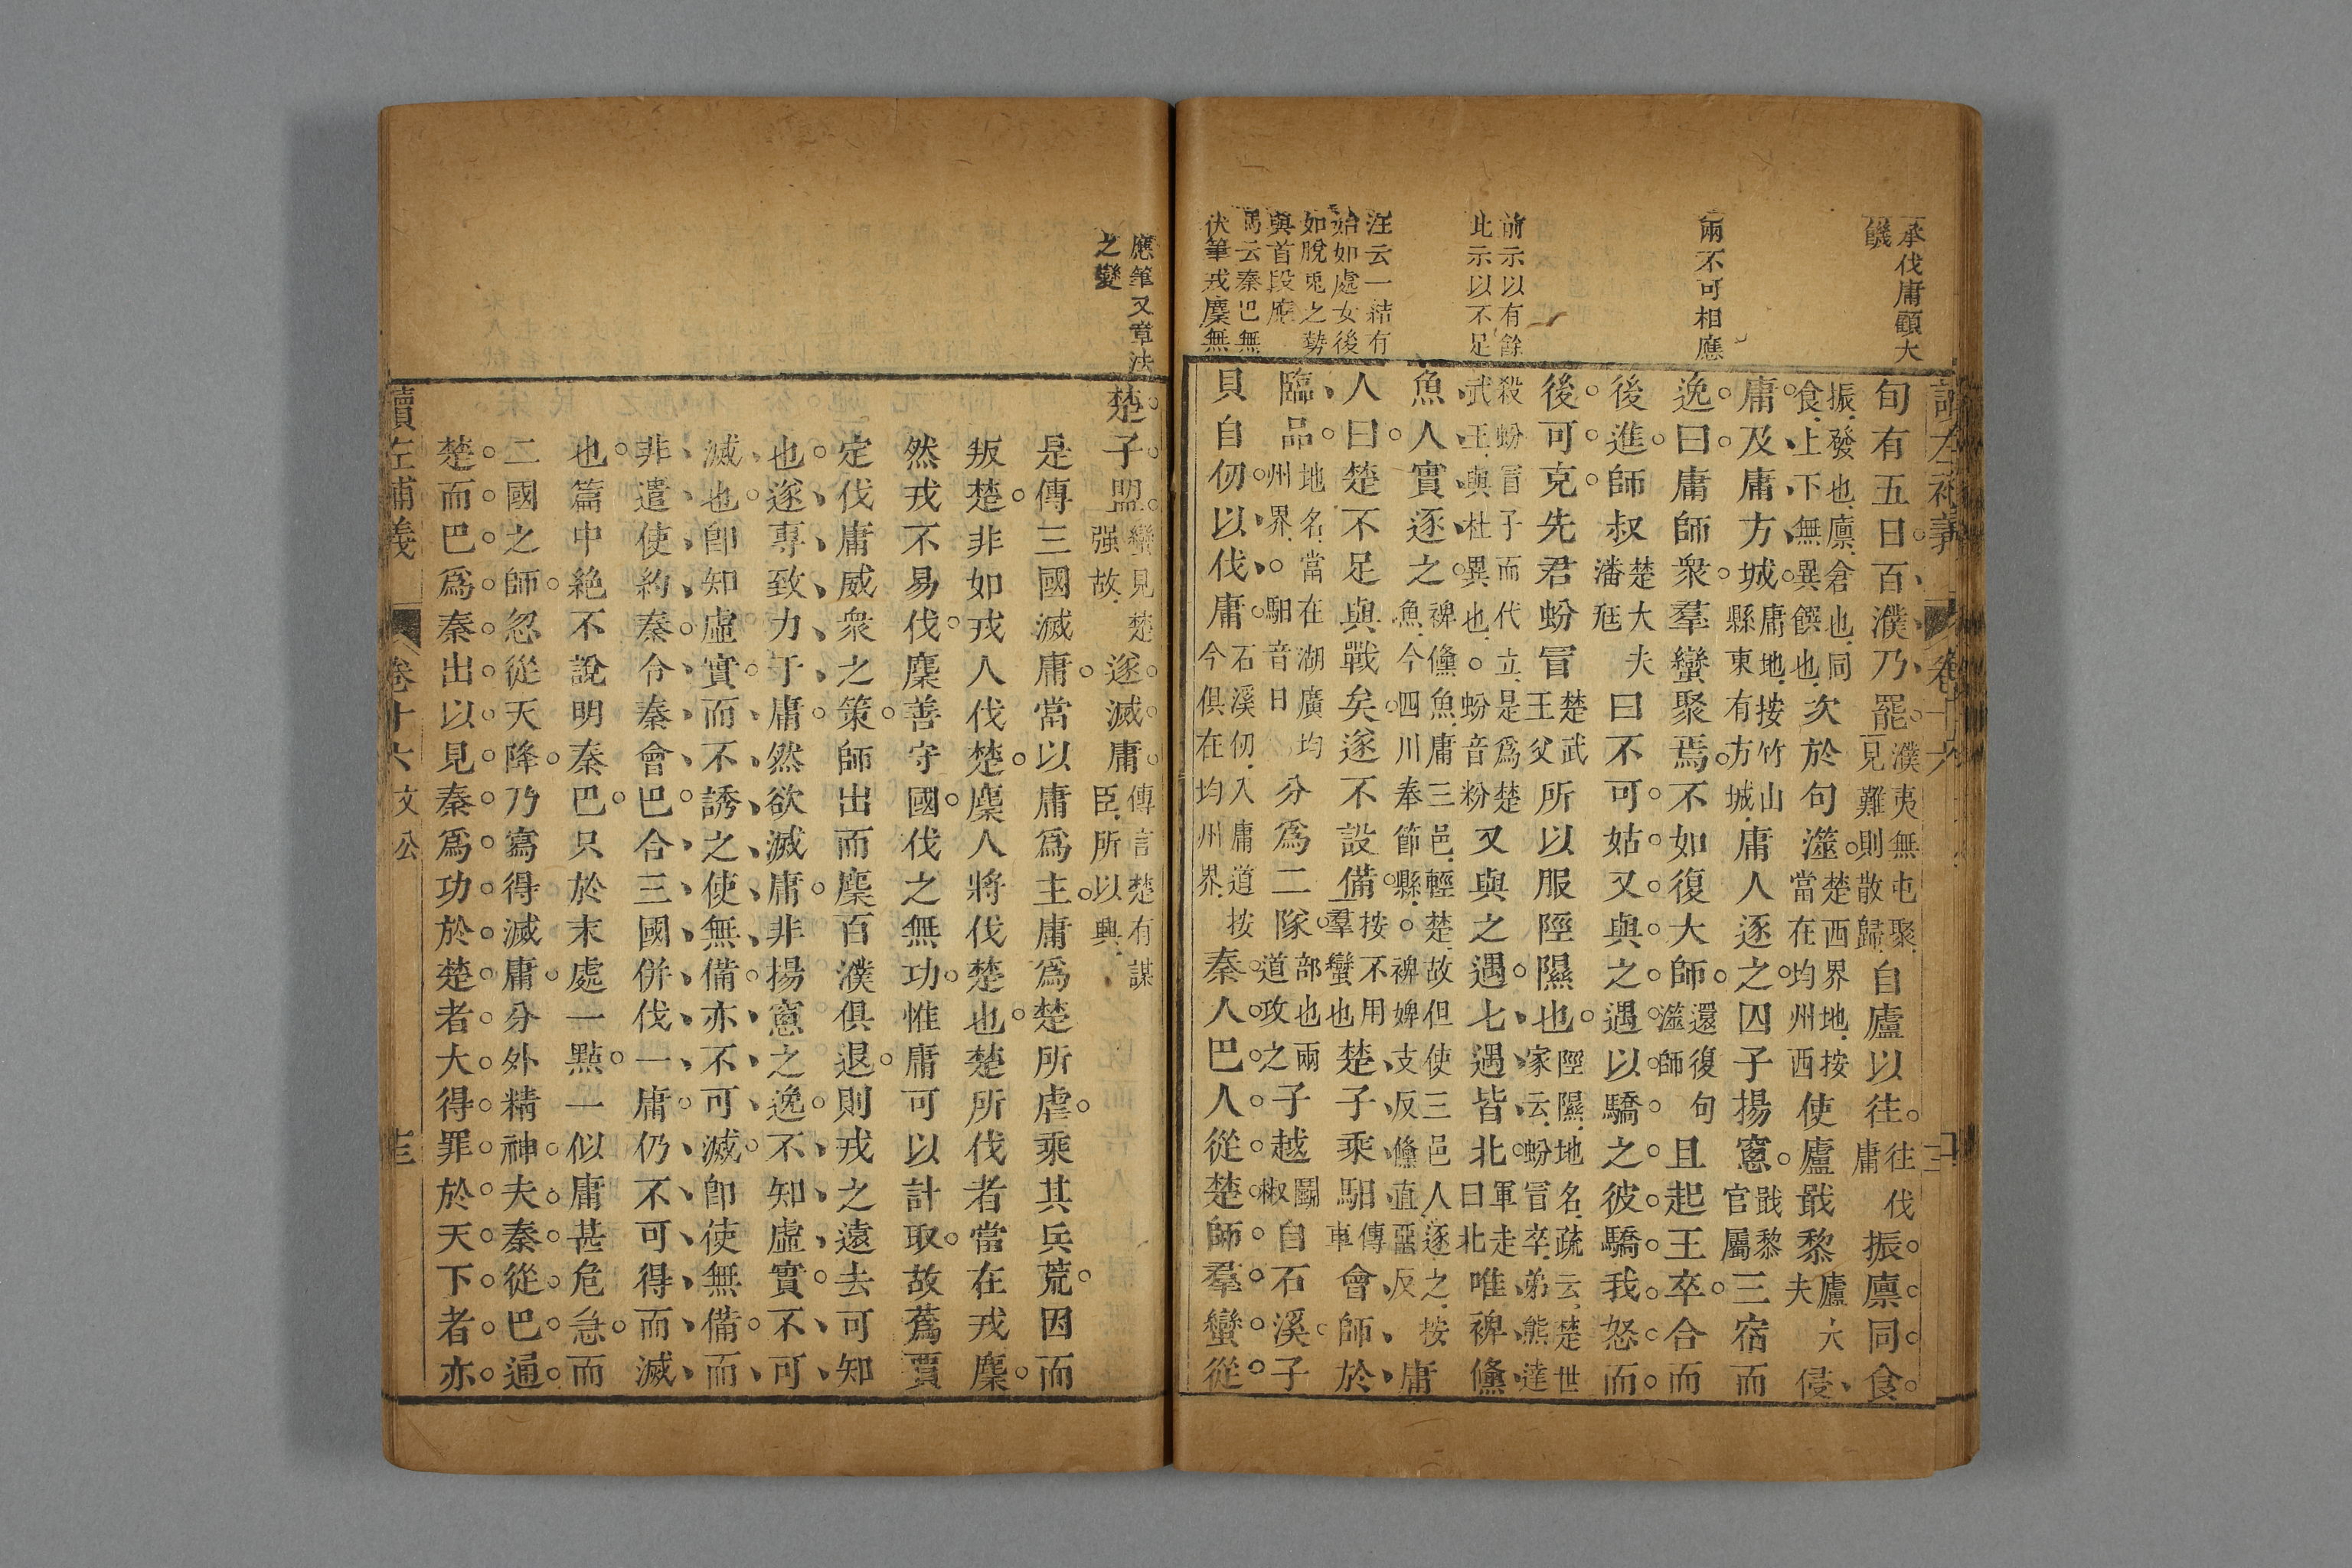 承伐庸顧大
饑
兩不可相應
前示以有餘
此示以不足
汪云一結有
始如處女後
如脫兎之勢
與首段應
馮云秦巴無
伏筆戎麇無
讀左補義 卷十六
旬有五日百濮乃罷濮夷無屯聚見難則散歸自廬以往往伐庸振廩同食
振發也廩倉也同食上下無異饌也次於句澨楚西界地按當在均州西使廬戢黎廬大夫侵
庸及庸方城庸地按竹山縣東有方城庸人逐之囚子揚窻戢黎官屬三宿而
逸曰庸師衆羣蠻聚焉不如復大師還復句澨師且起王卒合而
後進師叔楚大夫潘尫曰不可姑又與之遇以驕之彼驕我怒而
後可克先君蚡冒楚武王父所以服陘隰也陘隰地名疏云楚世家云蚡冒卒弟熊達
殺蚡冒子而代立是為楚武王與杜異也○蚡音粉又與之遇七遇皆北軍走曰北唯裨鯈
魚人實逐之裨鯈魚庸三邑輕楚故但使三邑人逐之按魚今四川奉節縣○裨婢支反鯈直反庸
人曰楚不足與戰矣遂不設備按不用羣蠻也楚子乘馹傳車會師於
臨品地名當在湖廣均州界○馹音日分爲二隊部也兩道攻之子越鬭椒自石溪子
貝自仞以伐庸石溪仞入庸道按今俱在均州界秦人巴人從楚師羣蠻從
應筆又章法
之變
楚子盟蠻見楚强故遂滅庸傳言楚有謀臣所以興
是傳三國滅庸當以庸爲主庸爲楚所虐乘其兵荒因而
叛楚非如戎人伐楚麇人將伐楚也楚所伐者當在戎麇
然戎不易伐麇善守國伐之無功惟庸可以計取故蔿賈
定伐庸威衆之策師出而麇百濮俱退則戎之遠去可知
也遂專致力于庸然欲滅庸非揚窻之逸不知虛實不可
滅也卽知虛實而不誘之使無備亦不可滅卽使無備而
非遣使約秦令秦會巴合三國併伐一庸仍不可得而滅
也篇中絶不說明秦巴只於末處一點一似庸甚危急而
二國之師忽從天降乃寫得滅庸分外精神夫秦從巴通
楚而巴爲秦出以見秦爲功於楚者大得罪於天下者亦
讀左補義 卷十六 文公